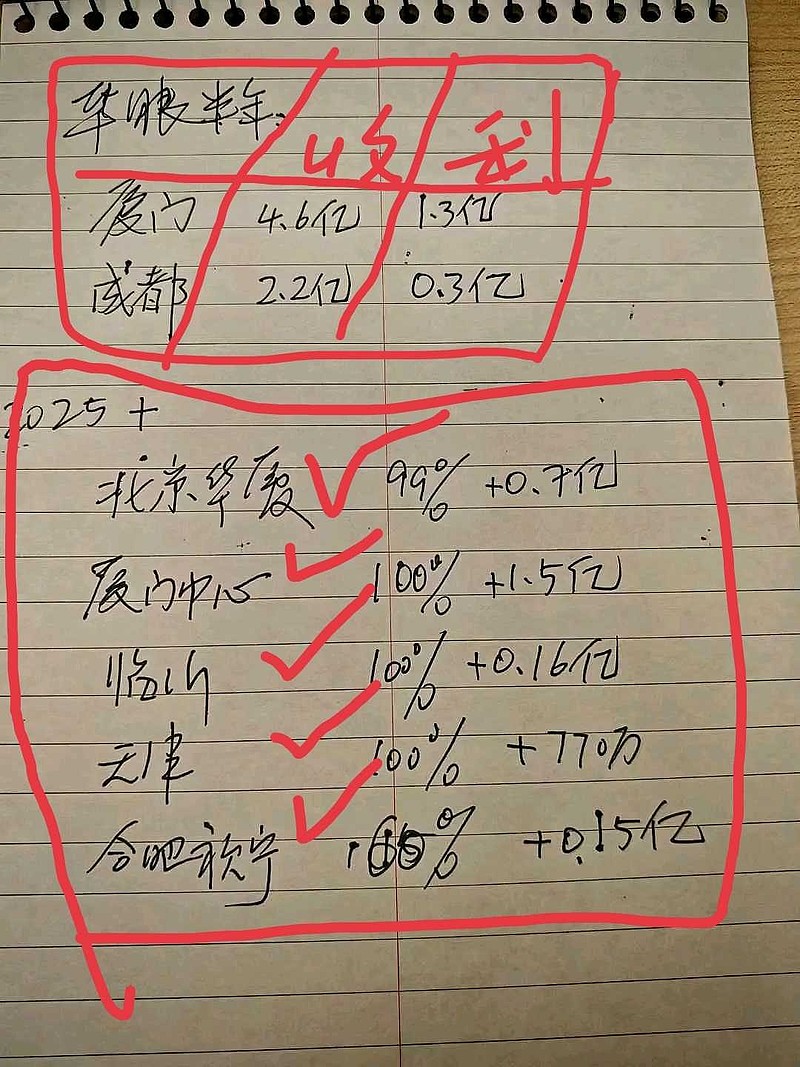 华眼半年: 收 利
厦门 4.6亿 1.3亿
成都 2.2亿 0.3亿
2025 +
北京华厦 99% +0.7亿
厦门中心 100% +1.5亿
临沂 100% +0.16亿
天津 100% +770万
合肥 % +0.15亿